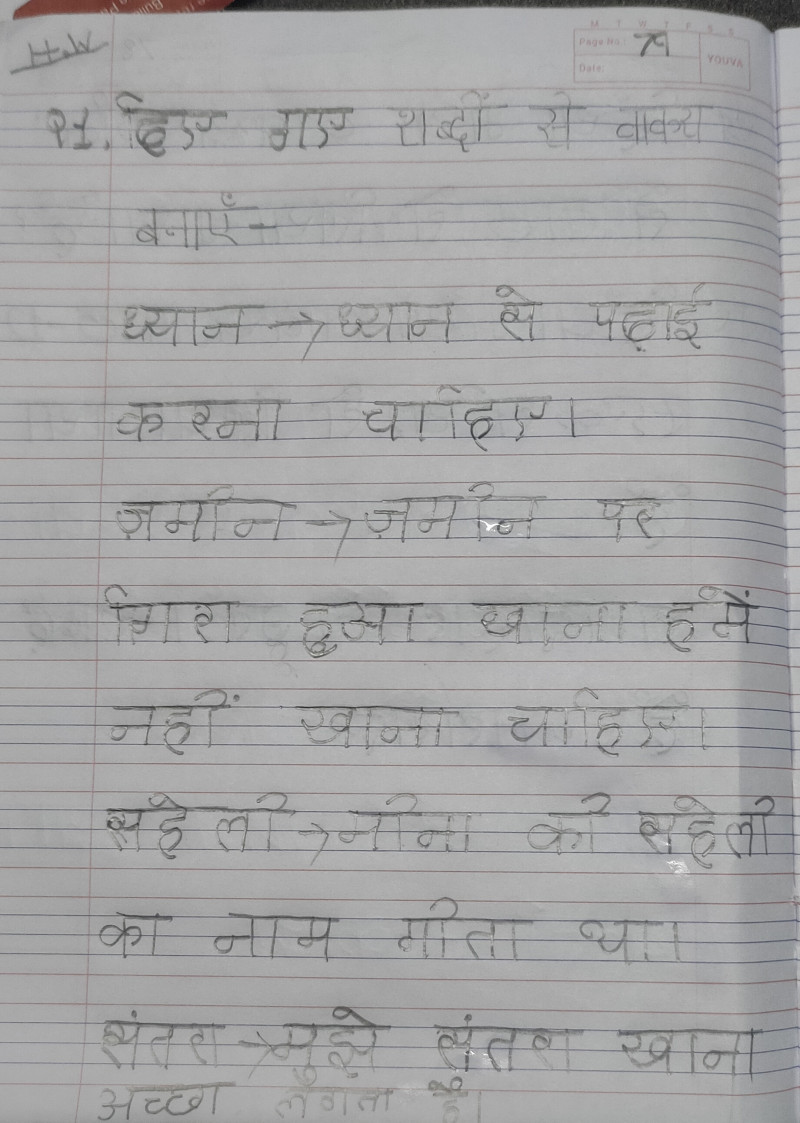 H.W
M T W T F S S
Page No.:
Date:
YOUVA
Q1. दिए गए शब्दों से वाक्य
बनाएँ-
ध्यान → ध्यान से पढ़ाई
करना चाहिए।
ज़मीन → ज़मीन पर
गिरा हुआ खाना हमें
नहीं खाना चाहिए।
सहेली → मीना की सहेली
का नाम गीता था।
संतरा → मुझे संतरा खाना
अच्छा लगता है।